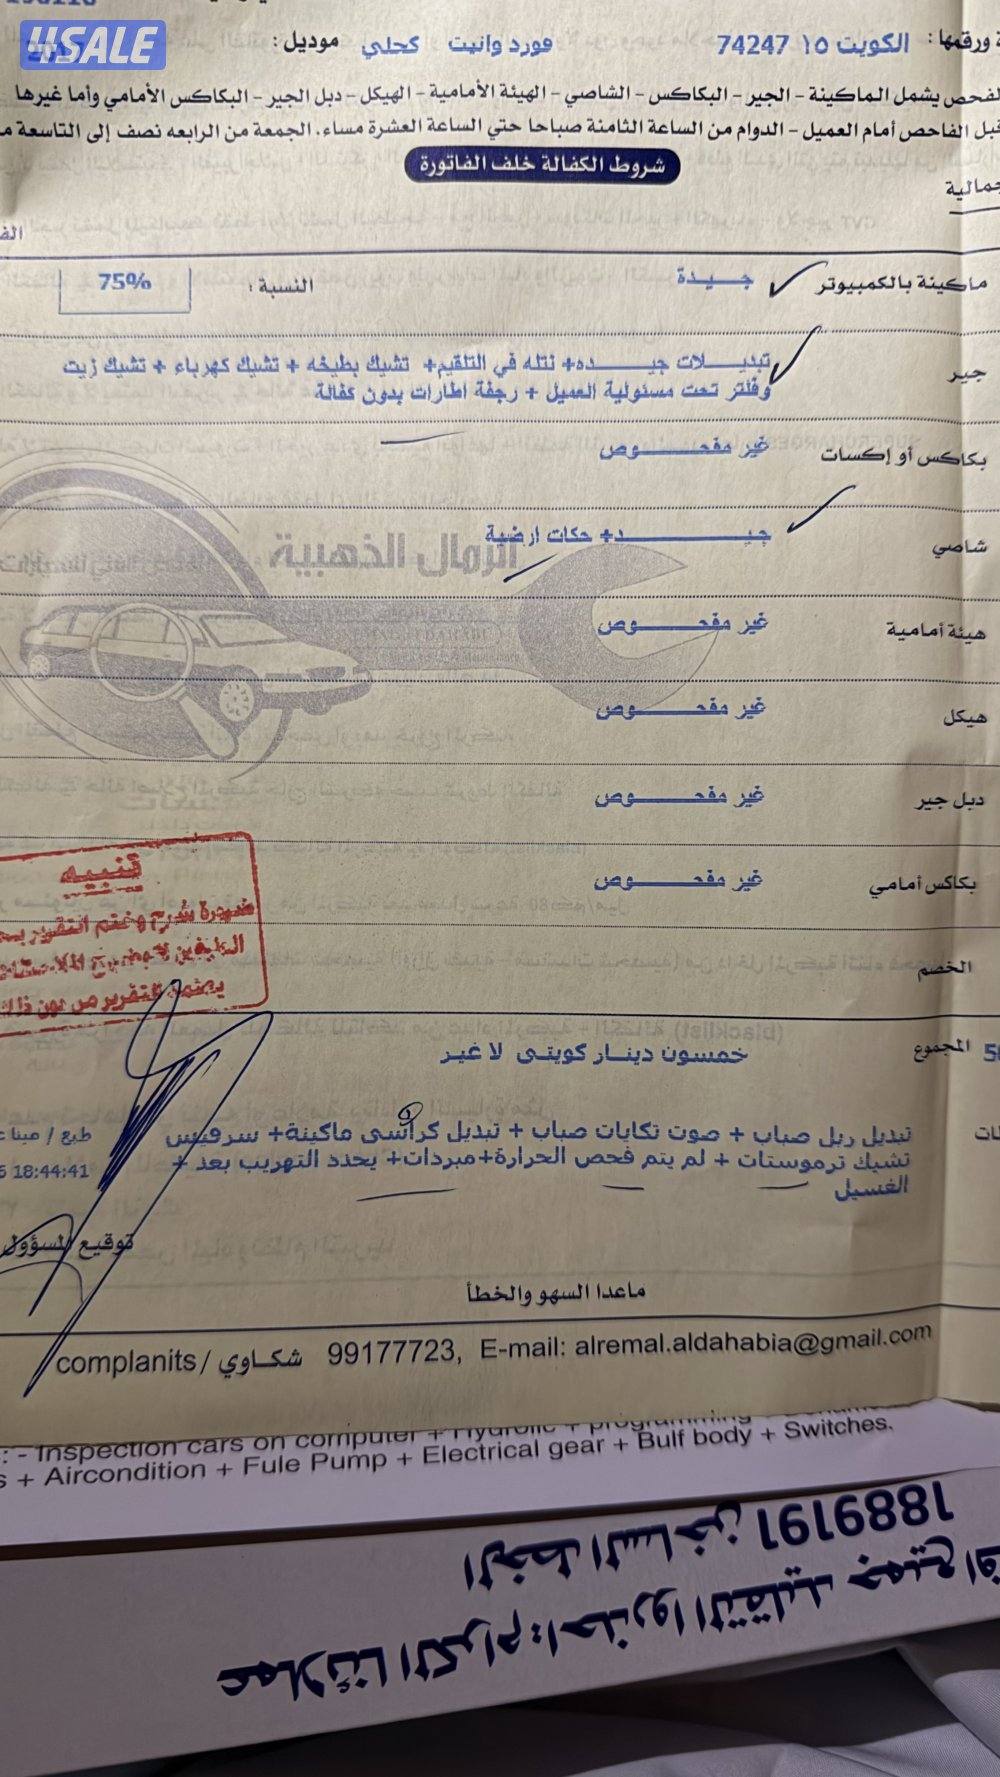 4SALE
ورقمها : الكويت ١٥ 74247 فورد وانيت كحلي موديل :
لفحص يشمل الماكينة - الجير - البكاكس - الشاصي - الهيئة الأمامية - الهيكل - دبل الجير - البكاكس الأمامي وأما غيرها
قبل الفاحص أمام العميل - الدوام من الساعة الثامنة صباحا حتي الساعة العشرة مساء، الجمعة من الرابعه نصف إلى التاسعة
شروط الكفالة خلف الفاتورة
ماكينة بالكمبيوتر جيدة النسبة : 75%
جير تبديلات جيده+ نتله في التلقيم+ تشيك بطيخه + تشيك كهرباء + تشيك زيت
وفلتر تحت مسئولية العميل + رجفة اطارات بدون كفالة
بكاكس أو إكسات غير مفحوص
شاصي جيد+ حكات ارضية
الرمال الذهبية
هيئة أمامية غير مفحوص
هيكل غير مفحوص
دبل جير غير مفحوص
بكاكس أمامي غير مفحوص
تنبيه
ضرورة شرح وختم التقرير
الخصم
المجموع خمسون دينار كويتي لا غير
تبديل ربل صباب + صوت تكايات صباب + تبديل كراسي ماكينة+ سرفيس
تشيك ترموستات + لم يتم فحص الحرارة+مبردات+ يحدد التهريب بعد +
الغسيل
طبع / مينا
18:44:41
توقيع المسؤول
ماعدا السهو والخطأ
complanits / شكاوي 99177723, E-mail: alremal.aldahabia@gmail.com
: - Inspection cars on computer + Hydrolic + programming
+ Aircondition + Fule Pump + Electrical gear + Bulf body + Switches.
عملائنا الكرام: احذروا التقليد جميع
الخط الساخن 1889191